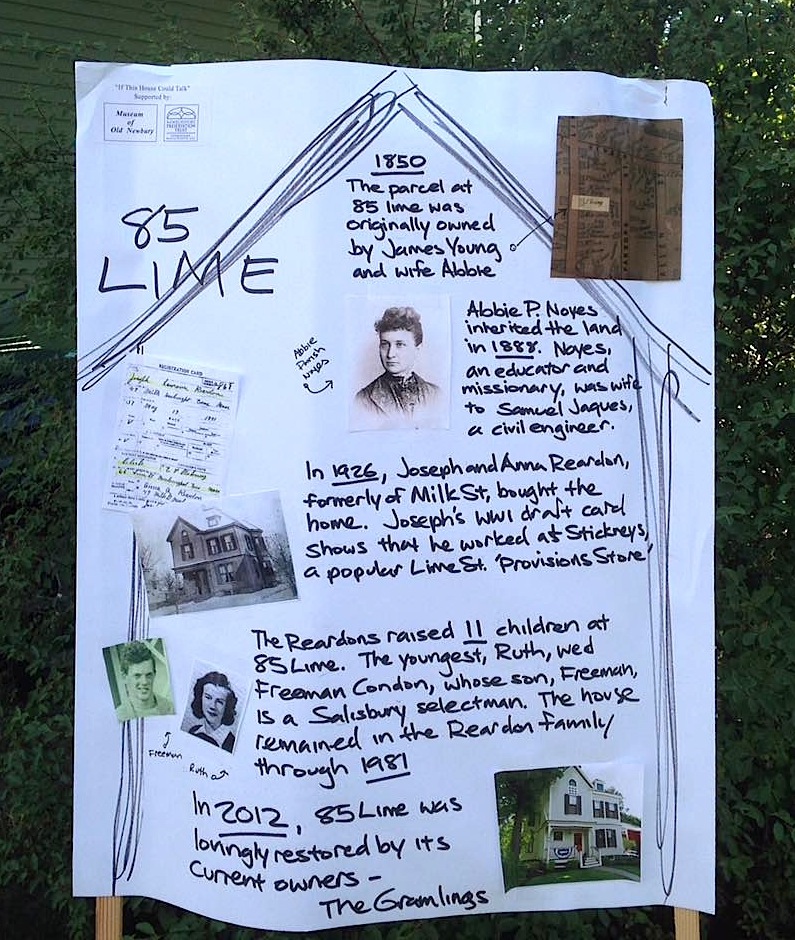 "If This House Could Talk"
Supported by:
Museum
of
Old Newbury
PRESERVATION
TRUST
85
LIME
1850
The parcel at
85 lime was
originally owned
by James Young
and wife Abbie
Abbie P. Noyes
inherited the land
in 1888. Noyes,
an educator and
missionary, was wife
to Samuel Jaques,
a civil engineer.
Abbie
Parish
Noyes
REGISTRATION CARD
In 1926, Joseph and Anna Reardon,
formerly of Milk St, bought the
home. Joseph's WWI draft card
shows that he worked at Stickneys,
a popular Lime St. 'Provisions Store'
The Reardons raised 11 children at
85 Lime. The youngest, Ruth, wed
Freeman Condon, whose son, Freeman,
is a Salisbury selectman. The house
remained in the Reardon family
through 1981
Freeman
Ruth
In 2012, 85 Lime was
lovingly restored by its
current owners -
The Gramlings